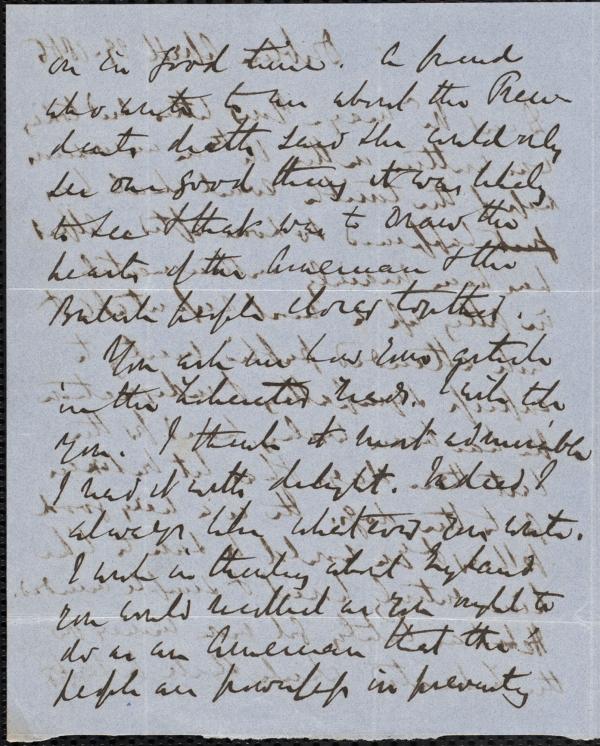 on in good time. A friend
who wrote to me about the Presi
dents death said she could only
see one good thing it was likely
to see & that was to draw the
hearts of the American & the
British people closer together.
You ask me how your article
in the Liberator reads. I will tell
you. I think it most admirable
I read it with delight. Indeed I
always like whatever you write.
I wish in thinking about England
you would recollect as you ought to
do as an American that the
people are powerless in preventing